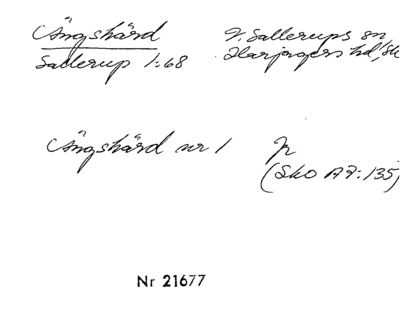 Ängshärd V. Sallerups sn
Sallerup 1:68 Harjagers hd, Sk
Ängshärd nr 1
(Sko A7:135)
Nr 21677